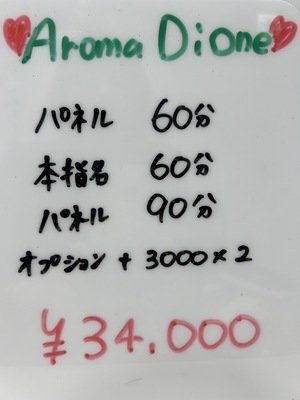 Aroma Dione
パネル 60分
本指名 60分
パネル 90分
オプション + 3000×2
¥34.000